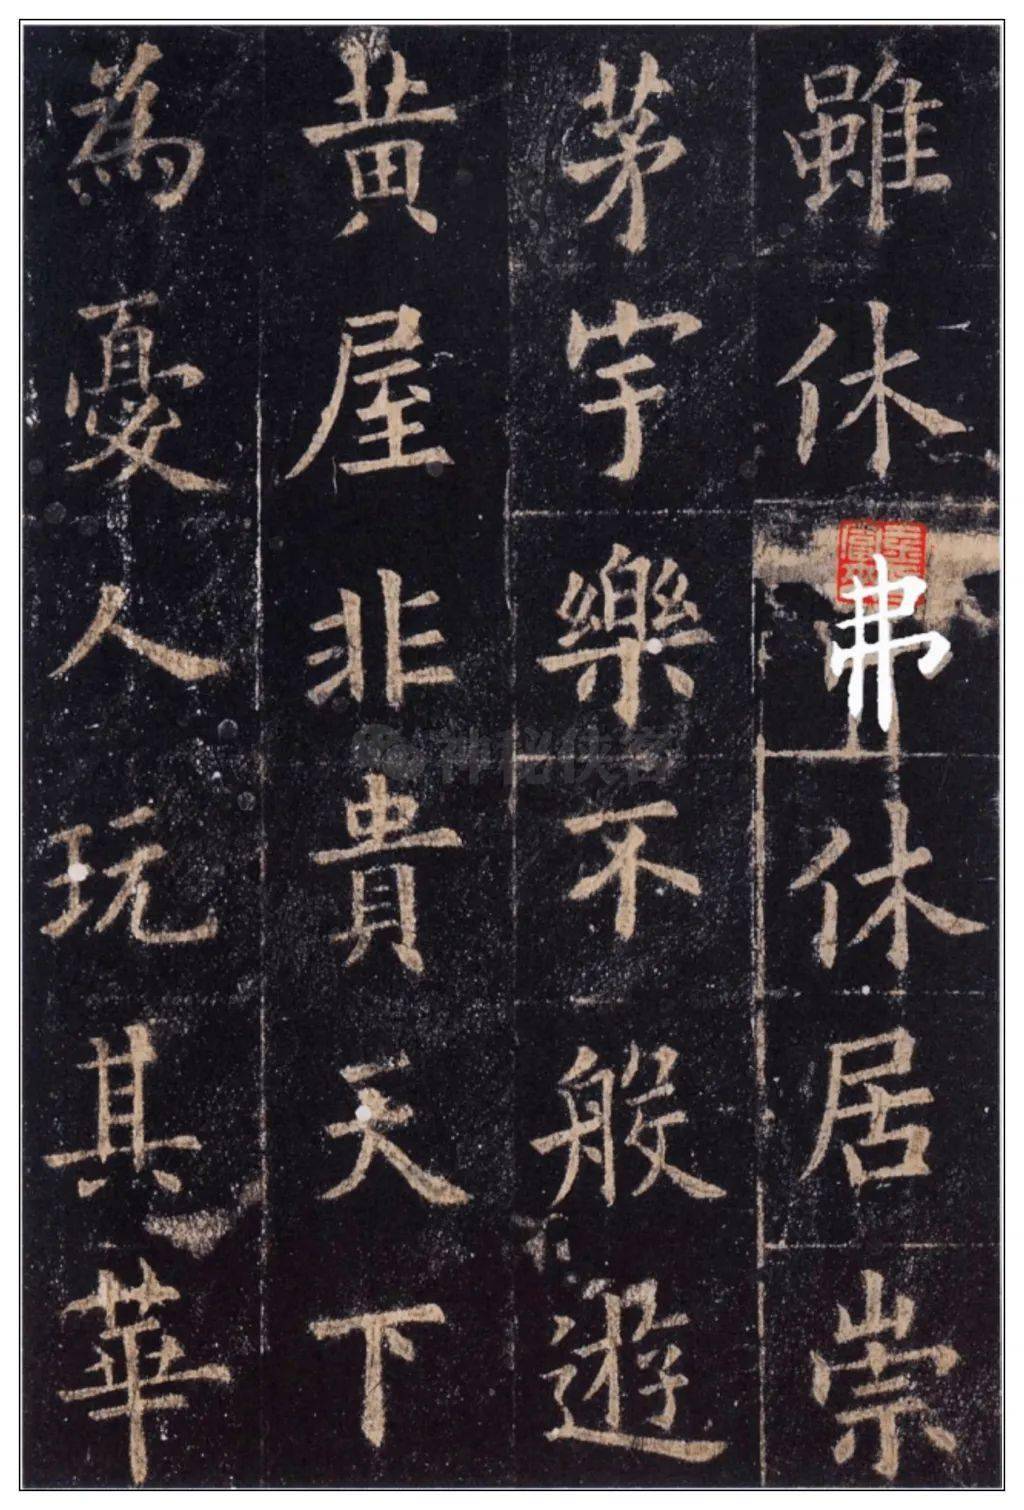 雖休弗休居崇
茅宇樂不般遊
黄屋非貴天下
為憂人玩其華
神秘侠客